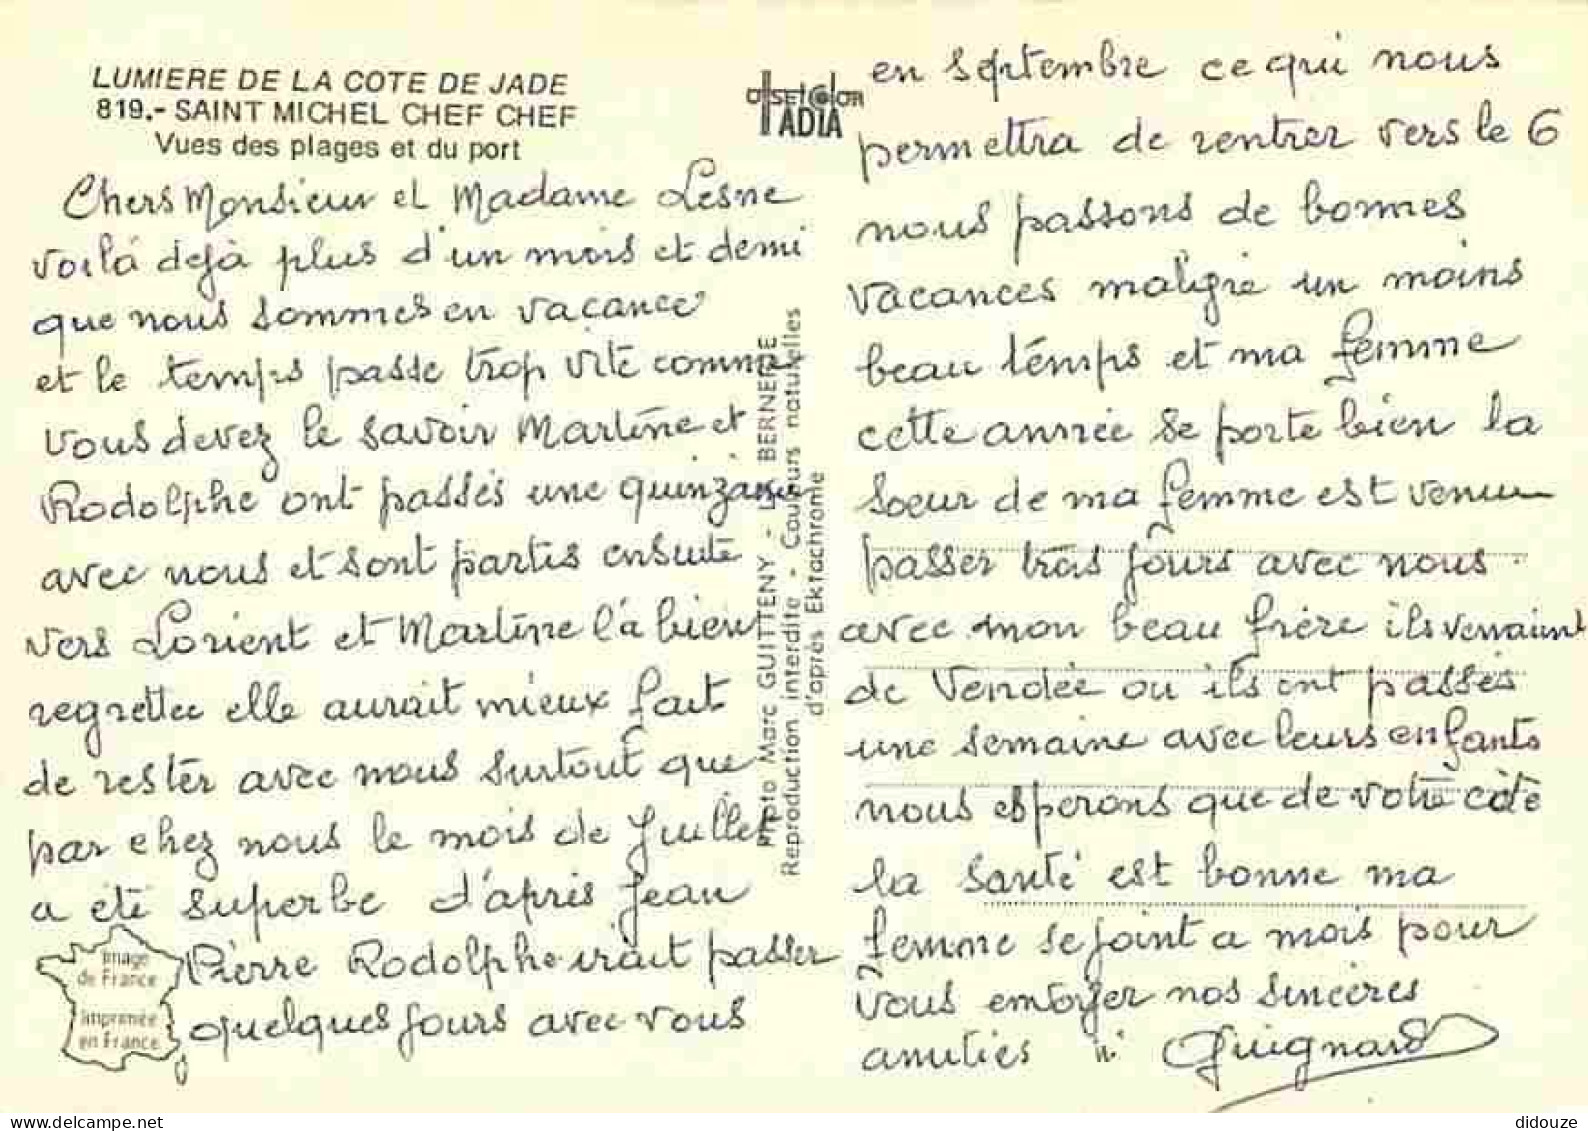 LUMIERE DE LA COTE DE JADE
819.- SAINT MICHEL CHEF CHEF
Vues des plages et du port
OFFSETCOLOR
IADIA
Chers Monsieur et Madame Lesne
voilà dejà plus d'un mois et demi
que nous sommes en vacance
et le temps passe trop vite comme
vous devez le savoir Martine et
Rodolphe ont passés une quinzaine
avec nous et sont partis ensuite
vers Lorient et Martine l'a bien
regrettee elle aurait mieux fait
de rester avec nous surtout que
par chez nous le mois de Juillet
a été superbe d'après Jean
Pierre Rodolphe irait passer
quelques jours avec vous
Image
de France
imprimée
en France
Photo Marc GUITTENY - LA BERNERIE
Reproduction interdite - Couleurs naturelles
d'après Ektachrome
en septembre ce qui nous
permettra de rentrer vers le 6
nous passons de bonnes
vacances malgré un moins
beau temps et ma femme
cette année se porte bien la
soeur de ma femme est venue
passer trois jours avec nous
avec mon beau frère ils venaient
de Vendée ou ils ont passés
une semaine avec leurs enfants
nous esperons que de votre côté
la santé est bonne ma
femme se joint a mois pour
vous envoyer nos sincères
amitiés Guignard
didouze